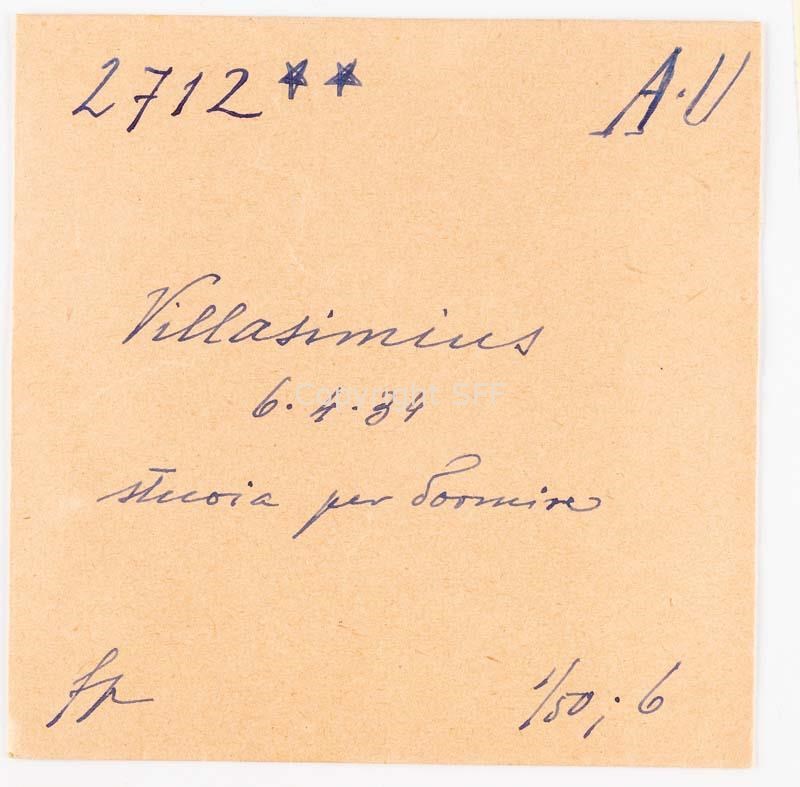 2712** A.U
Villasimius
6.4.34
stuoia per dormire
fp
1/50; 6
Copyright SFF